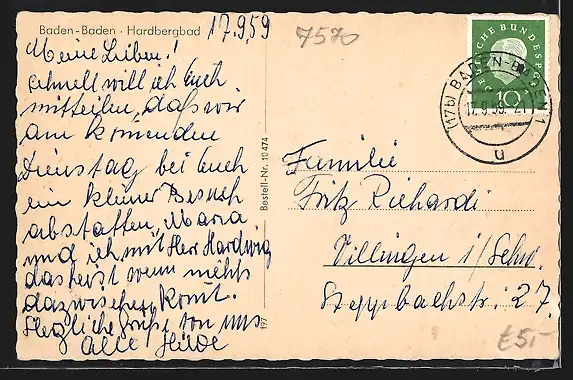 Baden-Baden · Hardbergbad
17.9.59
7570
Meine Lieben!
schnell will ich Euch
mitteilen, dass wir
am komenden
Dienstag bei Euch
ein kleiner Besuch
abstatten, Maria
und ich mit Herr Hardwig
das heist wenn nichts
dazwischen komt.
Herzliche Grüße von uns
alle Hilde
Bestell-Nr. 10474
197
DEUTSCHE BUNDESPOST
10
(17b) BADEN-BADEN 1
17.9.59-21
u
Familie
Fritz Richardi
Villingen i/Schw.
Steppbachstr. 27.
£5,-